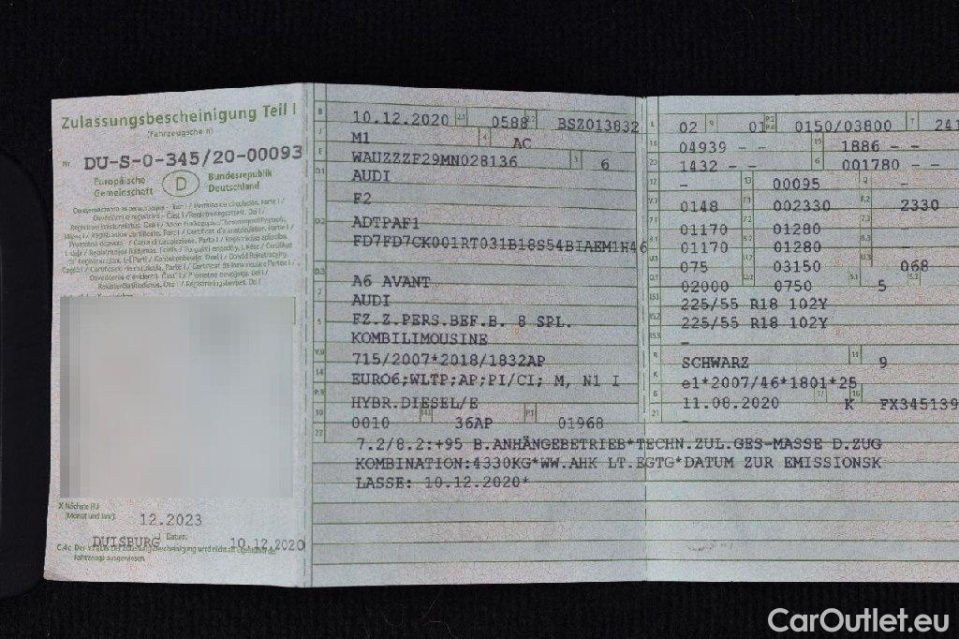 Zulassungsbescheinigung Teil I
(Fahrzeugschein)
Nr. DU-S-0-345/20-00093
Europäische Gemeinschaft
D
Bundesrepublik Deutschland
X Nächste HU
(Monat und Jahr)
12.2023
DUISBURG
Datum:
10.12.2020
B 10.12.2020 2.1 0588 2.2 BSZ013832
J M1 4 AC
E WAUZZZF29MN028136 3 6
D.1 AUDI
F2
D.2 ADTPAF1
FD7FD7CK001RT031B18S54BIAEM1H46
D.3 A6 AVANT
2 AUDI
5 FZ.Z.PERS.BEF.B. 8 SPL.
KOMBILIMOUSINE
V.9 715/2007*2018/1832AP
14 EURO6;WLTP;AP;PI/CI; M, N1 I
P.3 HYBR.DIESEL/E
10 0010 14.1 36AP P.1 01968
22 7.2/8.2:+95 B.ANHÄNGEBETRIEB*TECHN.ZUL.GES-MASSE D.ZUG
KOMBINATION:4330KG*WW.AHK LT.EGTG*DATUM ZUR EMISSIONSK
LASSE: 10.12.2020*
L 02 9 01 P.2 P.4 0150/03800 T 241
18 04939 - - 19 1886 - -
20 1432 - - G 001780 - -
12 - 13 00095 Q -
V.7 0148 F.1 002330 F.2 2330
01170 01280 -
01170 01280 -
U.1 075 U.2 03150 U.3 068
O.1 02000 O.2 0750 S.1 5
15.1 225/55 R18 102Y
15.2 225/55 R18 102Y
15.3 -
R SCHWARZ 11 9
K e1*2007/46*1801*25
6 11.08.2020 17 K 16 FX345139
21 -
CarOutlet.eu